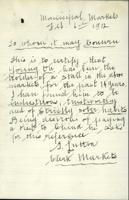 Municipal Markets
Feb 6th 1912
To whom it may Concern
This is to certify that
Young On has been the
holder of a stall in the above
markets for the past 14 years
I have found him to be
industrious, trustworthy
and of strictly sober habits
Being desirous of paying
a visit to China he asks
for this reference
Clerk Markets